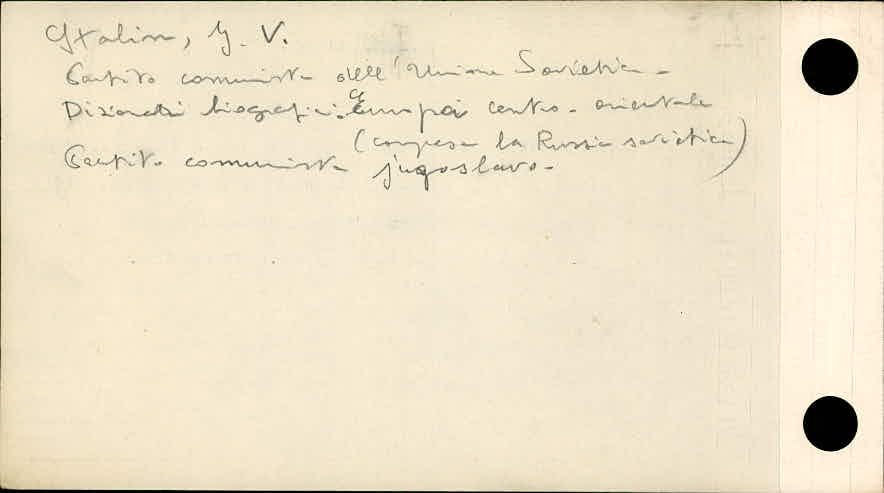 Stalin, J. V.
Partito comunista dell'Unione Sovietica -
Dizionari biografici. Europa centro-orientale
(compresa la Russia sovietica)
Partito comunista jugoslavo -